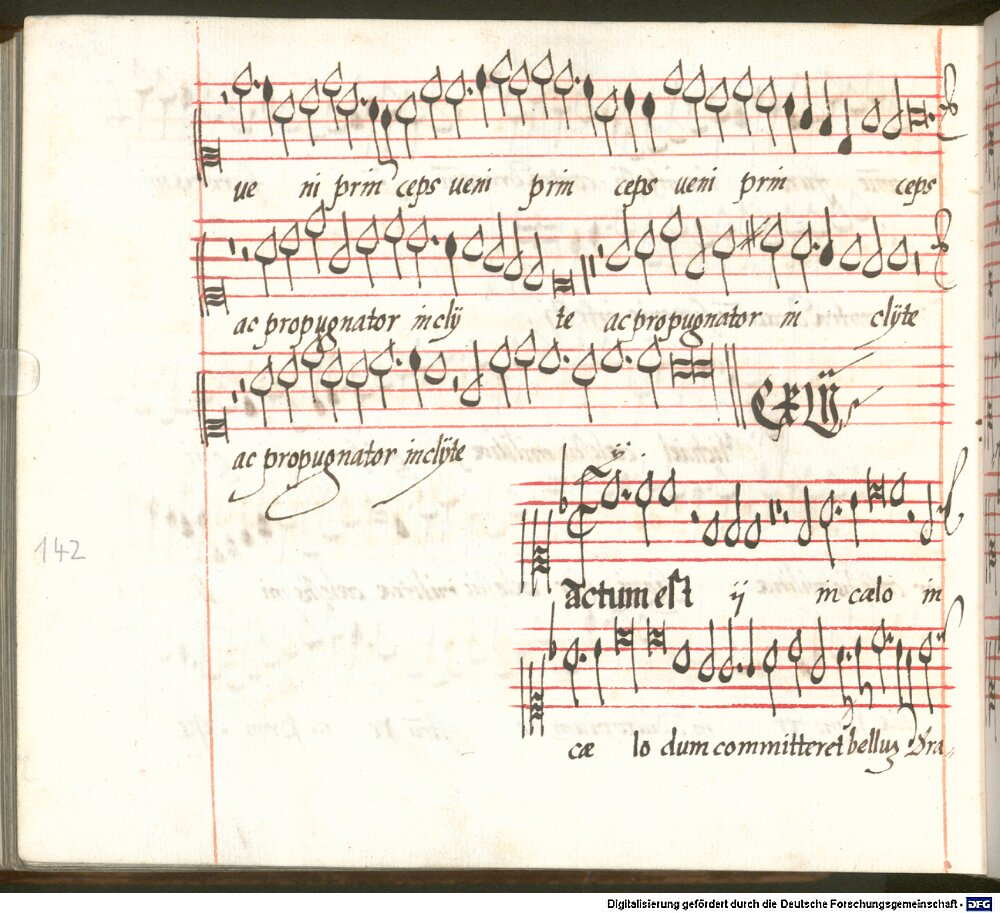 ve ni prin ceps veni prin ceps veni prin ceps
ac propugnator inclÿ te ac propugnator in clÿte
ac propugnator inclÿte
CXLIJ
ÿ.
142
actum est ij in cælo in
cæ lo dum committeret belluȝ Dra„
Digitalisierung gefördert durch die Deutsche Forschungsgemeinschaft - DFG